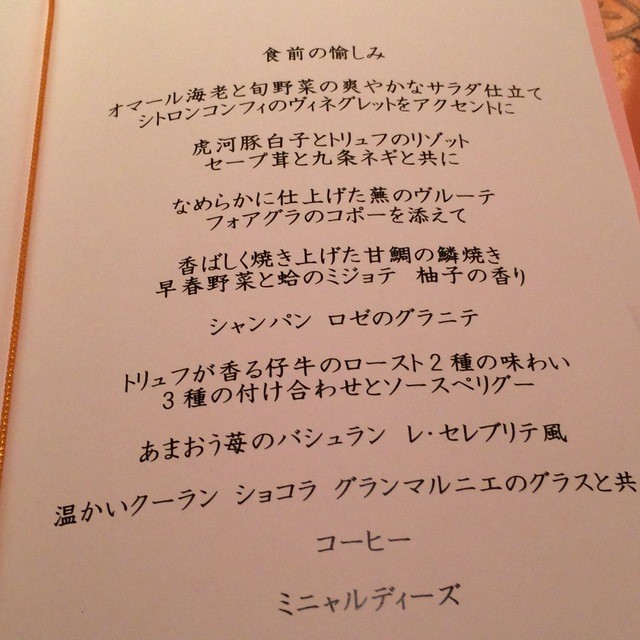 食前の愉しみ
オマール海老と旬野菜の爽やかなサラダ仕立て
シトロンコンフィのヴィネグレットをアクセントに
虎河豚白子とトリュフのリゾット
セープ茸と九条ネギと共に
なめらかに仕上げた蕪のヴルーテ
フォアグラのコポーを添えて
香ばしく焼き上げた甘鯛の鱗焼き
早春野菜と蛤のミジョテ 柚子の香り
シャンパン ロゼのグラニテ
トリュフが香る仔牛のロースト2種の味わい
3種の付け合わせとソースペリグー
あまおう苺のバシュラン レ・セレブリテ風
温かいクーラン ショコラ グランマルニエのグラスと共
コーヒー
ミニャルディーズ